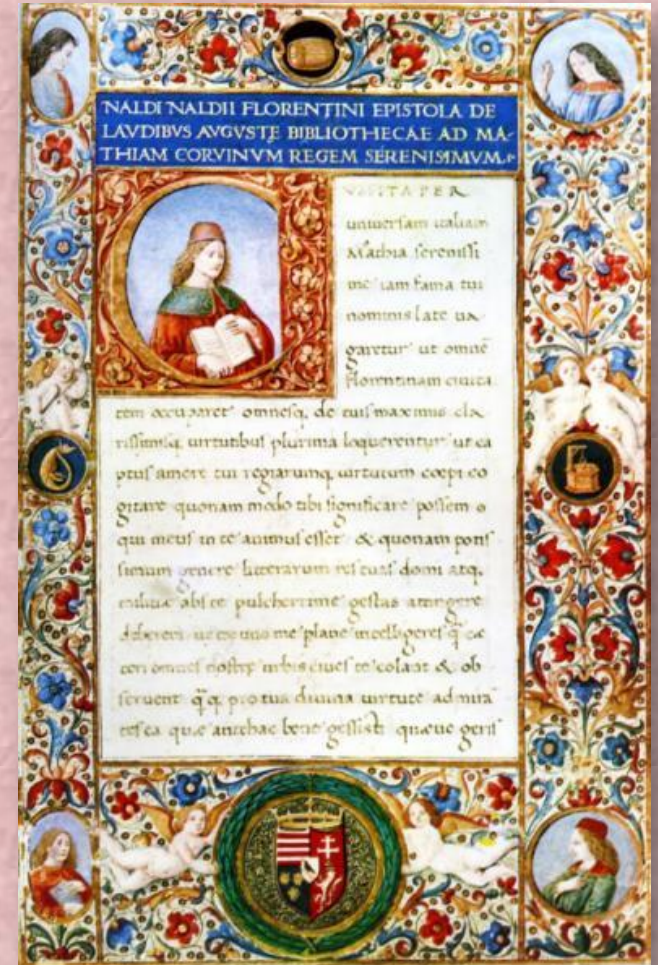 NALDI NALDII FLORENTINI EPISTOLA DE
LAVDIBVS AVGVSTE BIBLIOTHECAE AD MA-
THIAM CORVINVM REGEM SERENISIMVM.
PER
universam italiam
Mathia serenissi
me iam fama tui
nominis late va
garetur ut omnē
florentinam civita
tem occuparet omnesq. de tuis maximis cla
rissimisq. virtutibus plurima loquerentur ut ca
ptus amore tui regiarumq. virtutum coepi co
gitare quonam modo tibi significare possem
qui meus in te animus esset & quonam potis
simum genere litterarum res tuas domi atq.
militiae abs te pulcherrime gestas attingere
deberem ut ex uno me plane intelligeres
omnes nostrę urbis cives te colant & ob
servent pro tua divina virtute admira
ea quae antehac bene gessisti quaeve geris